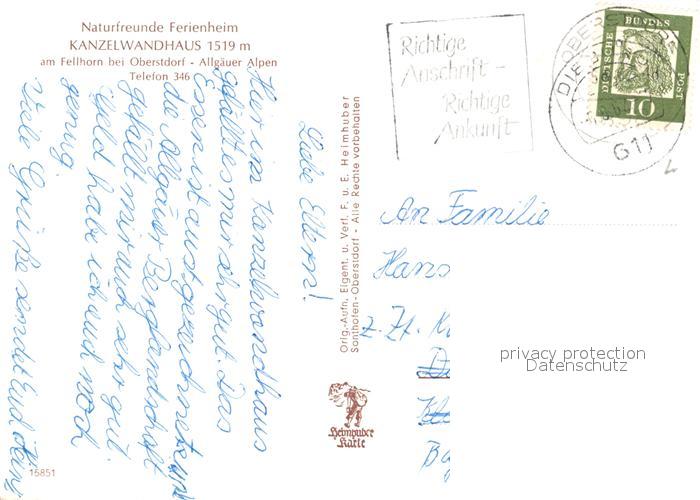 Naturfreunde Ferienheim
KANZELWANDHAUS 1519 m
am Fellhorn bei Oberstdorf - Allgäuer Alpen
Telefon 346
Liebe Eltern!
Hier im Kanzelwandhaus
gefällt es mir sehr gut. Das
Essen ist ausgezeichnet und
die Allgäuer Berglandschaft
gefällt mir auch sehr gut.
Geld habe ich auch noch
genug.
Viele Grüße sendet Euch
15851
Orig.-Aufn. Eigent. u. Verl. F. u. E. Heimhuber
Sonthofen-Oberstdorf - Alle Rechte vorbehalten
Heimhuber
Karte
Richtige
Anschrift -
Richtige
Ankunft
OBERSTDORF
G11
DEUTSCHE BUNDES POST
10
An Familie
Hans
z. Zt.
privacy protection
Datenschutz